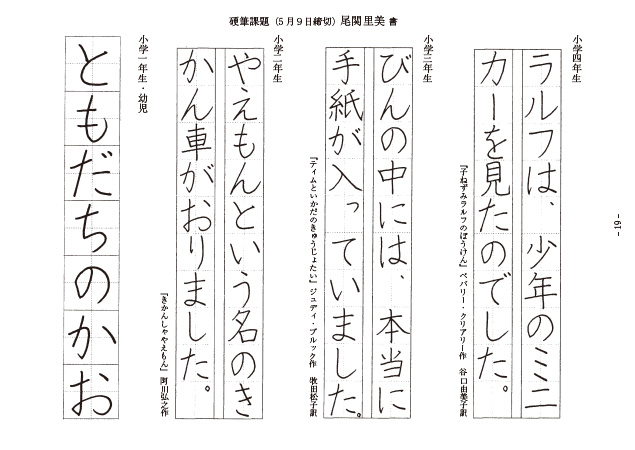 硬筆課題（5月9日締切）尾関里美 書
小学四年生
ラルフは、少年のミニ
カーを見たのでした。
『子ねずみラルフのぼうけん』ベバリー・クリアリー作　谷口由美子訳
小学三年生
びんの中には、本当に
手紙が入っていました。
『ティムといかだのきゅうじょたい』ジュディ・ブルック作　牧田松子訳
小学二年生
やえもんという名のき
かん車がおりました。
『きかんしゃやえもん』阿川弘之作
小学一年生・幼児
ともだちのかお
- 19 -